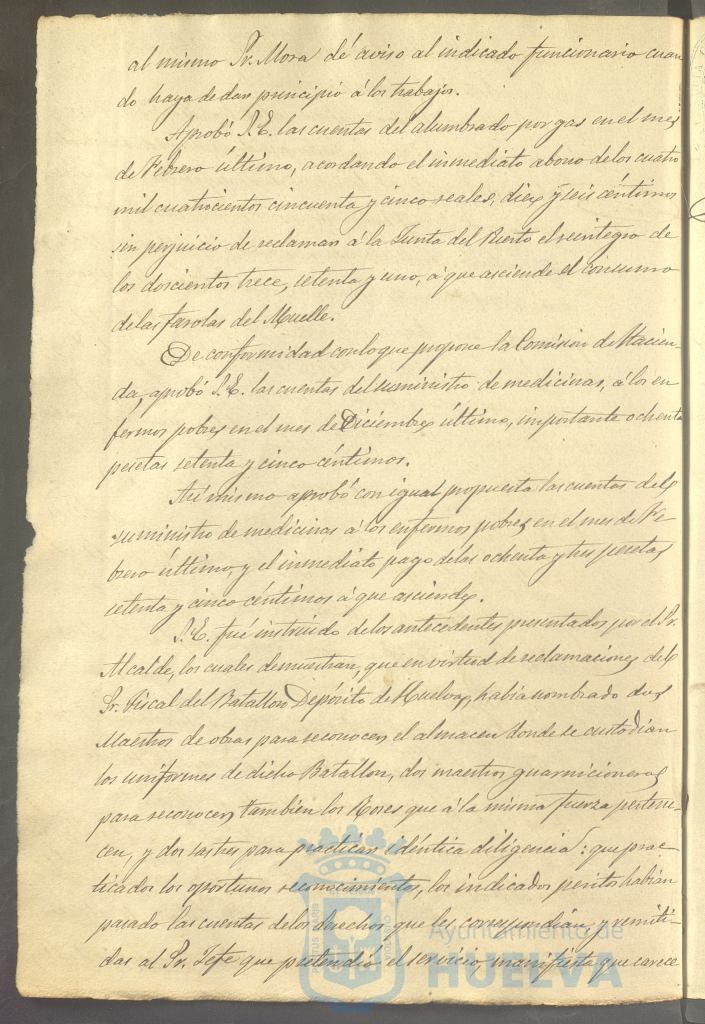 al mismo Sr. Mora dé aviso al indicado funcionario cuan
do haya de dar principio á los trabajos.
Aprobó S.E. las cuentas del alumbrado por gas en el mes
de Febrero último, acordando el inmediato abono de los cuatro
mil cuatrocientos cincuenta y cinco reales, diez y seis céntimos
sin perjuicio de reclamar á la Junta del Puerto el reintegro de
los doscientos trece, setenta y uno, á que asciende el consumo
de las farolas del Muelle.
De conformidad con lo que propone la Comisión de Hacien-
da, aprobó S.E. las cuentas del suministro de medicinas, á los en
fermos pobres en el mes de Diciembre último, importante ochenta
pesetas setenta y cinco céntimos.
Así mismo aprobó con igual propuesta las cuentas del
suministro de medicinas á los enfermos pobres en el mes de Fe
brero último, y el inmediato pago de las ochenta y tres pesetas
setenta y cinco céntimos á que asciende.
S.E. fué instruido de los antecedentes presentados por el Sr.
Alcalde, los cuales demuestran, que en virtud de reclamaciones del
Sr. Fiscal del Batallon Depósito de Huelva, habia nombrado dos
Maestros de obras para reconocer el almacen donde se custodian
los uniformes de dicho Batallon, dos maestros guarnicioneros
para reconocer tambien los Roses que á la misma fuerza pertene-
cen, y dos sastres para practicar idéntica diligencia: que prac-
ticados los oportunos reconocimientos, los indicados peritos habian
pasado las cuentas de los derechos que les correspondian, y remiti-
das al Sr. Jefe que pretendió el servicio, manifiesta que carece
Ayuntamiento de
HUELVA